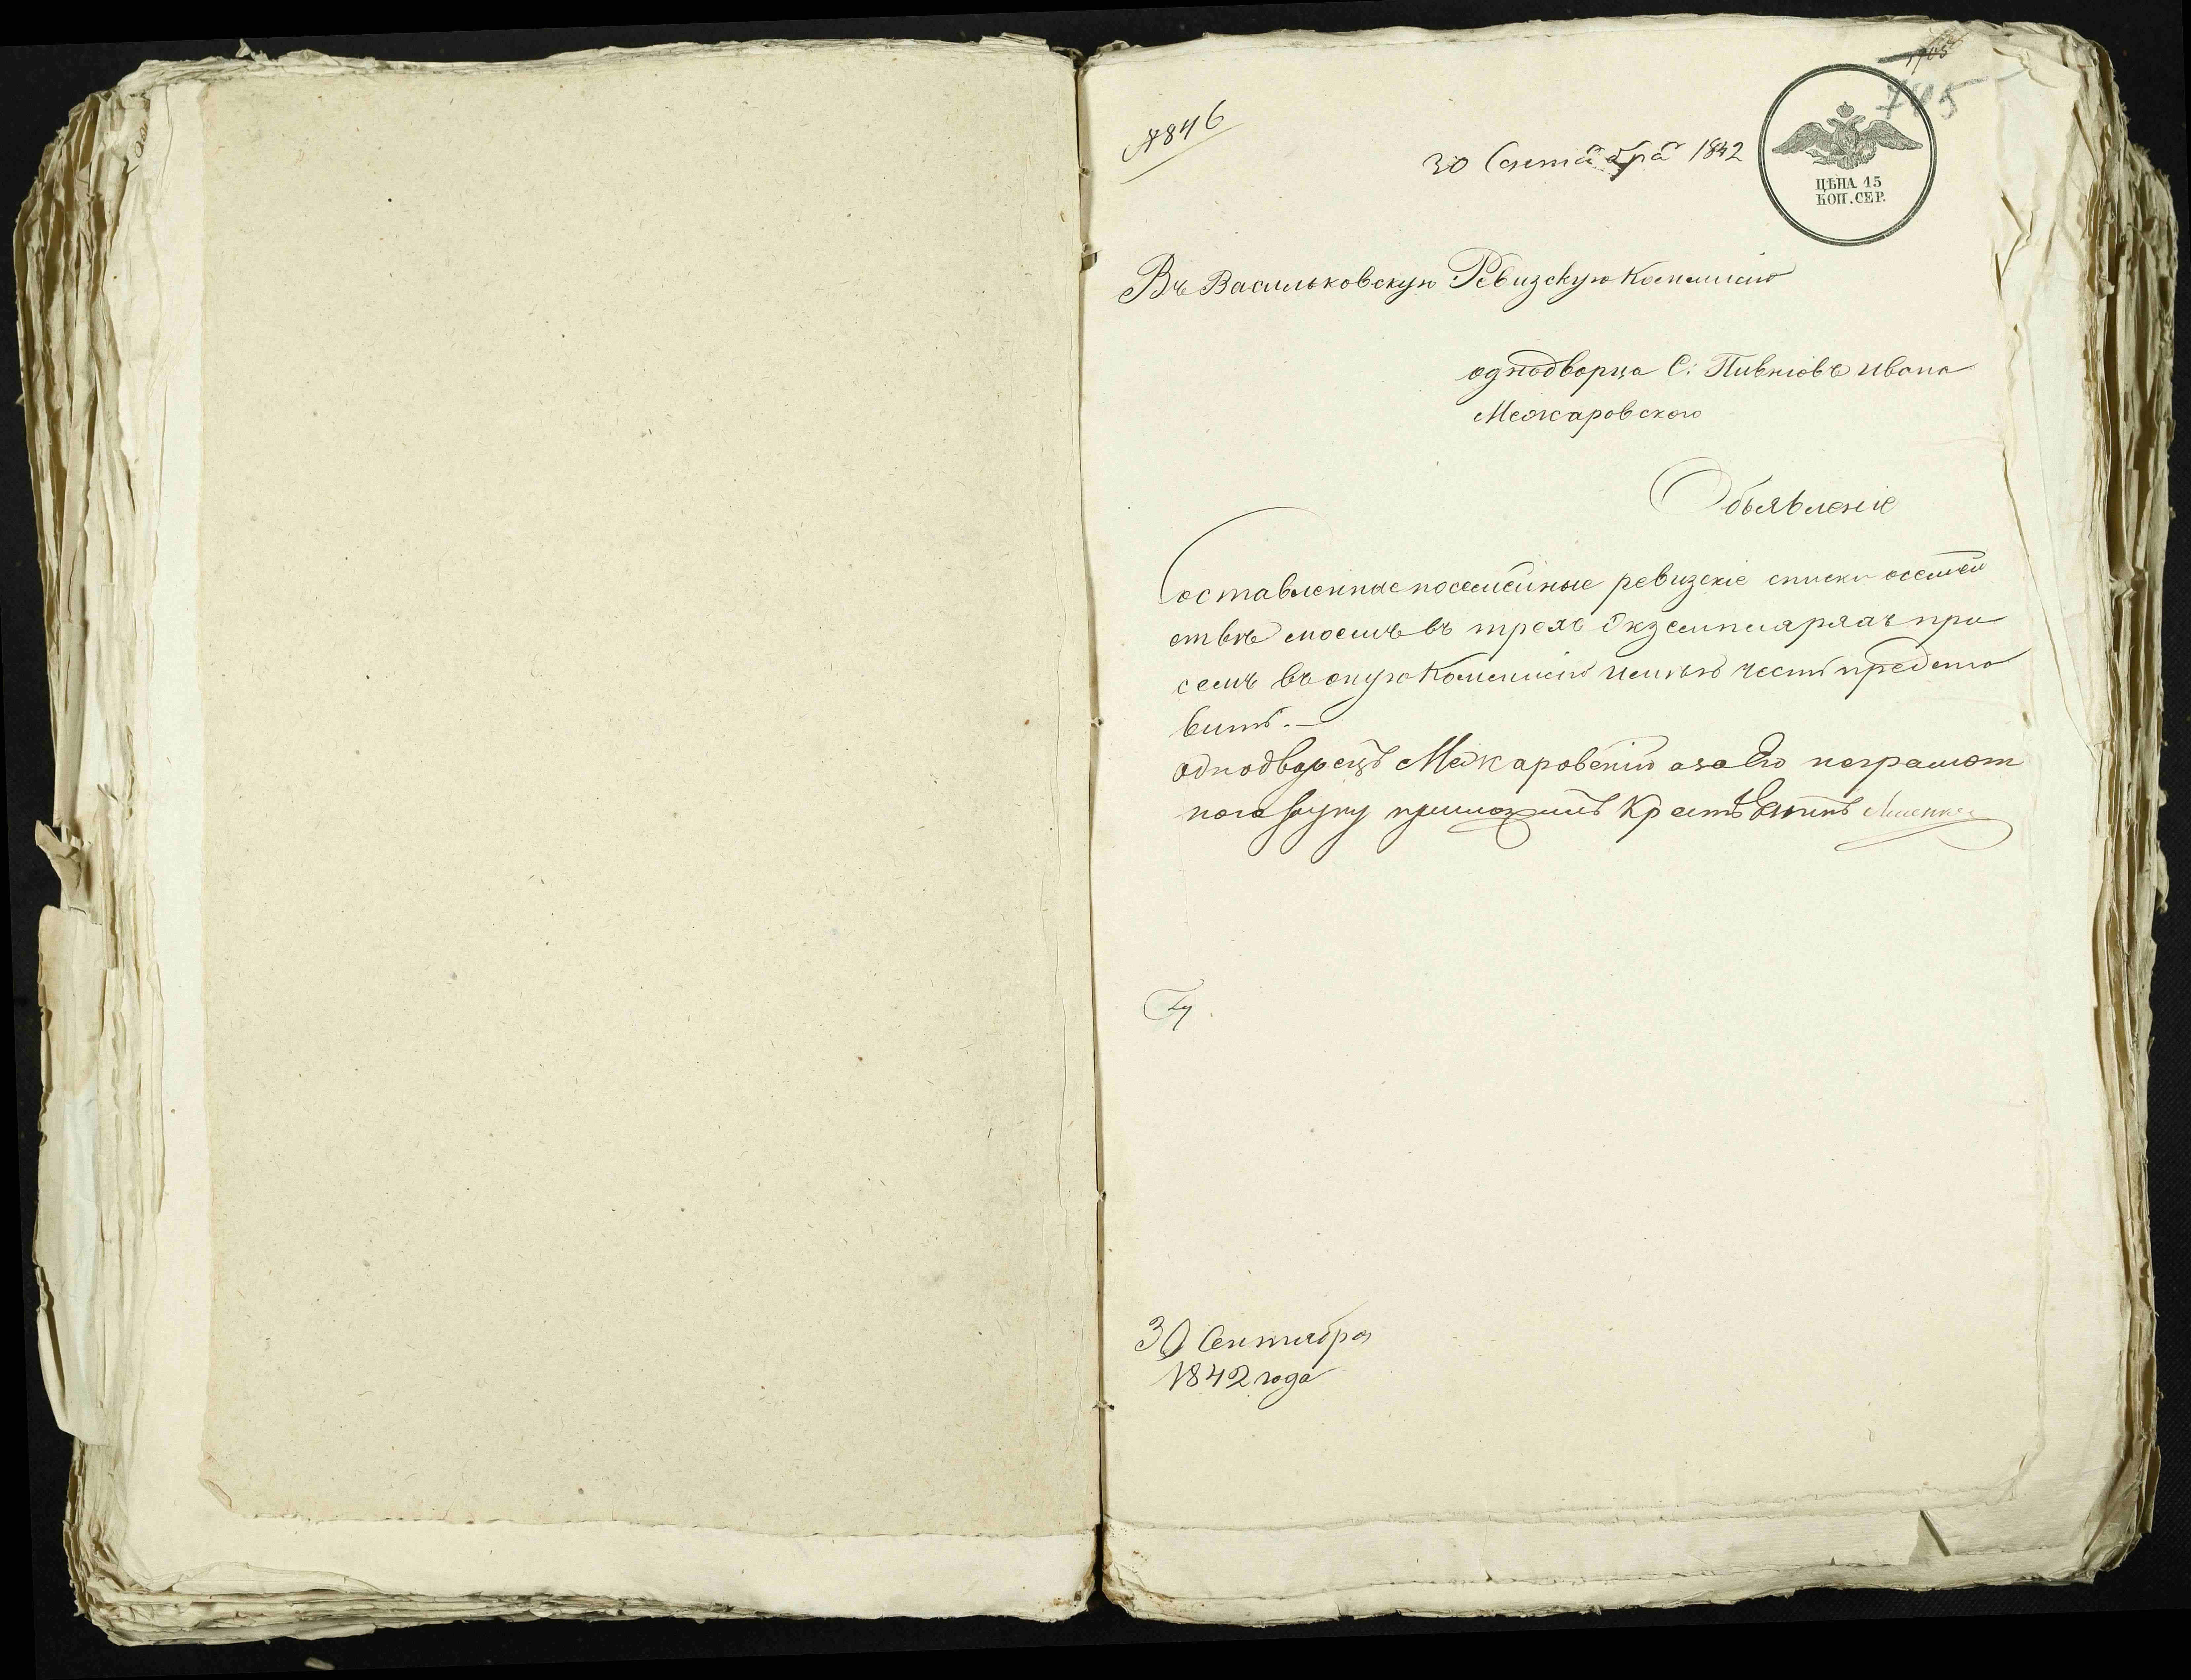 745
№ 846
30 Сентября 1842
ЦѢНА 15
КОП. СЕР.
Въ Васильковскую Ревизскую Коммисію
однодворца С: Пивніовъ Ивана
Межаровского
Объявленіе
Составленные посемейные ревизскіе списки осемей
ствѣ моемъ въ трехъ Экземплярахъ при
семъ въ оную Коммисію имѣю честь предста
вить. —
Однодворецъ Межаровскій а за Его неграмот
ного руку приложилъ
30 Сентября
1842 года